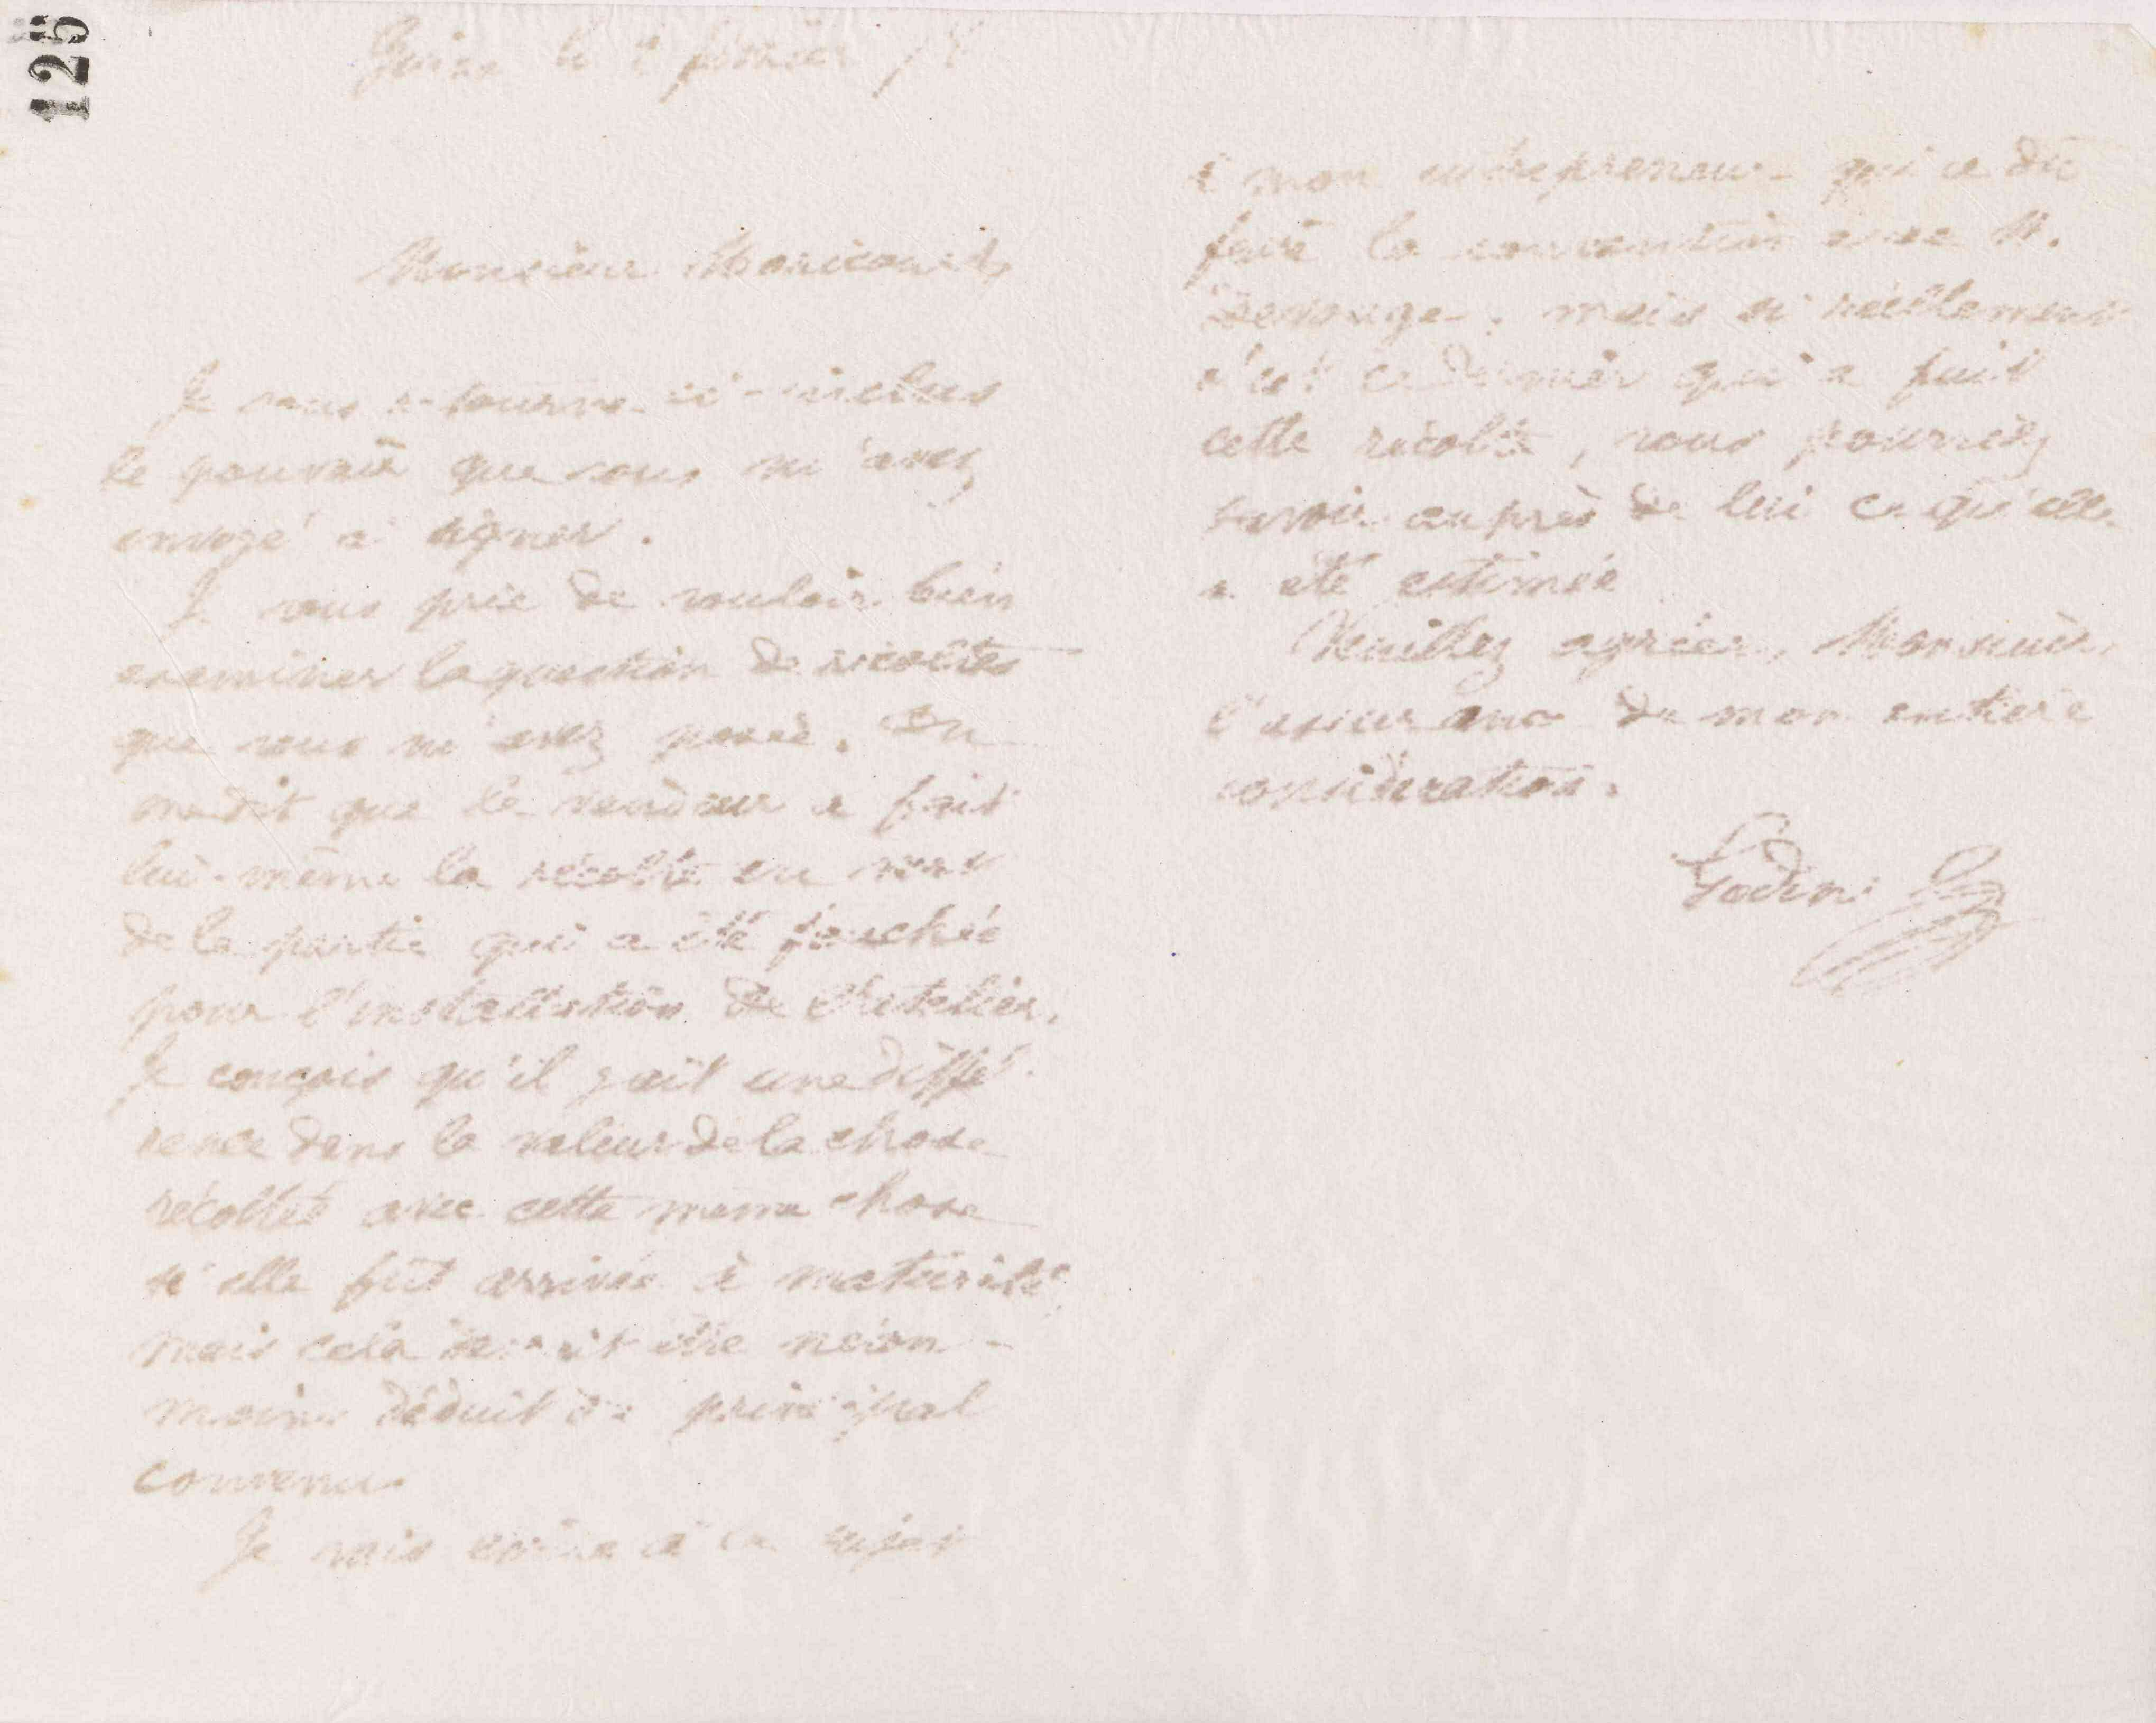 125
Guise le 2 février 78
Monsieur Moricourt
Je vous retourne ci-inclus
le pouvoir que vous m'avez
envoyé à signer.
Je vous prie de vouloir bien
examiner la question de récoltes
que vous m'avez posée. On
me dit que le vendeur a fait
lui-même la récolte en vert
de la partie qui a été fauchée
pour l'installation de l'atelier.
Je conçois qu'il y ait une diffé-
rence dans la valeur de la chose
récoltée avec cette même chose
si elle fut arrivée à maturité
mais cela devrait être néan-
moins déduit du principal
convenu.
Je vais écrire à ce sujet
à mon entrepreneur qui a dû
faire la convention avec M.
mais si réellement
c'est ce dernier qui a fait
cette récolte, vous pourriez
savoir auprès de lui ce qu'elle
a été estimée
Veuillez agréer, Monsieur,
l'assurance de mon entière
considération.
Godin